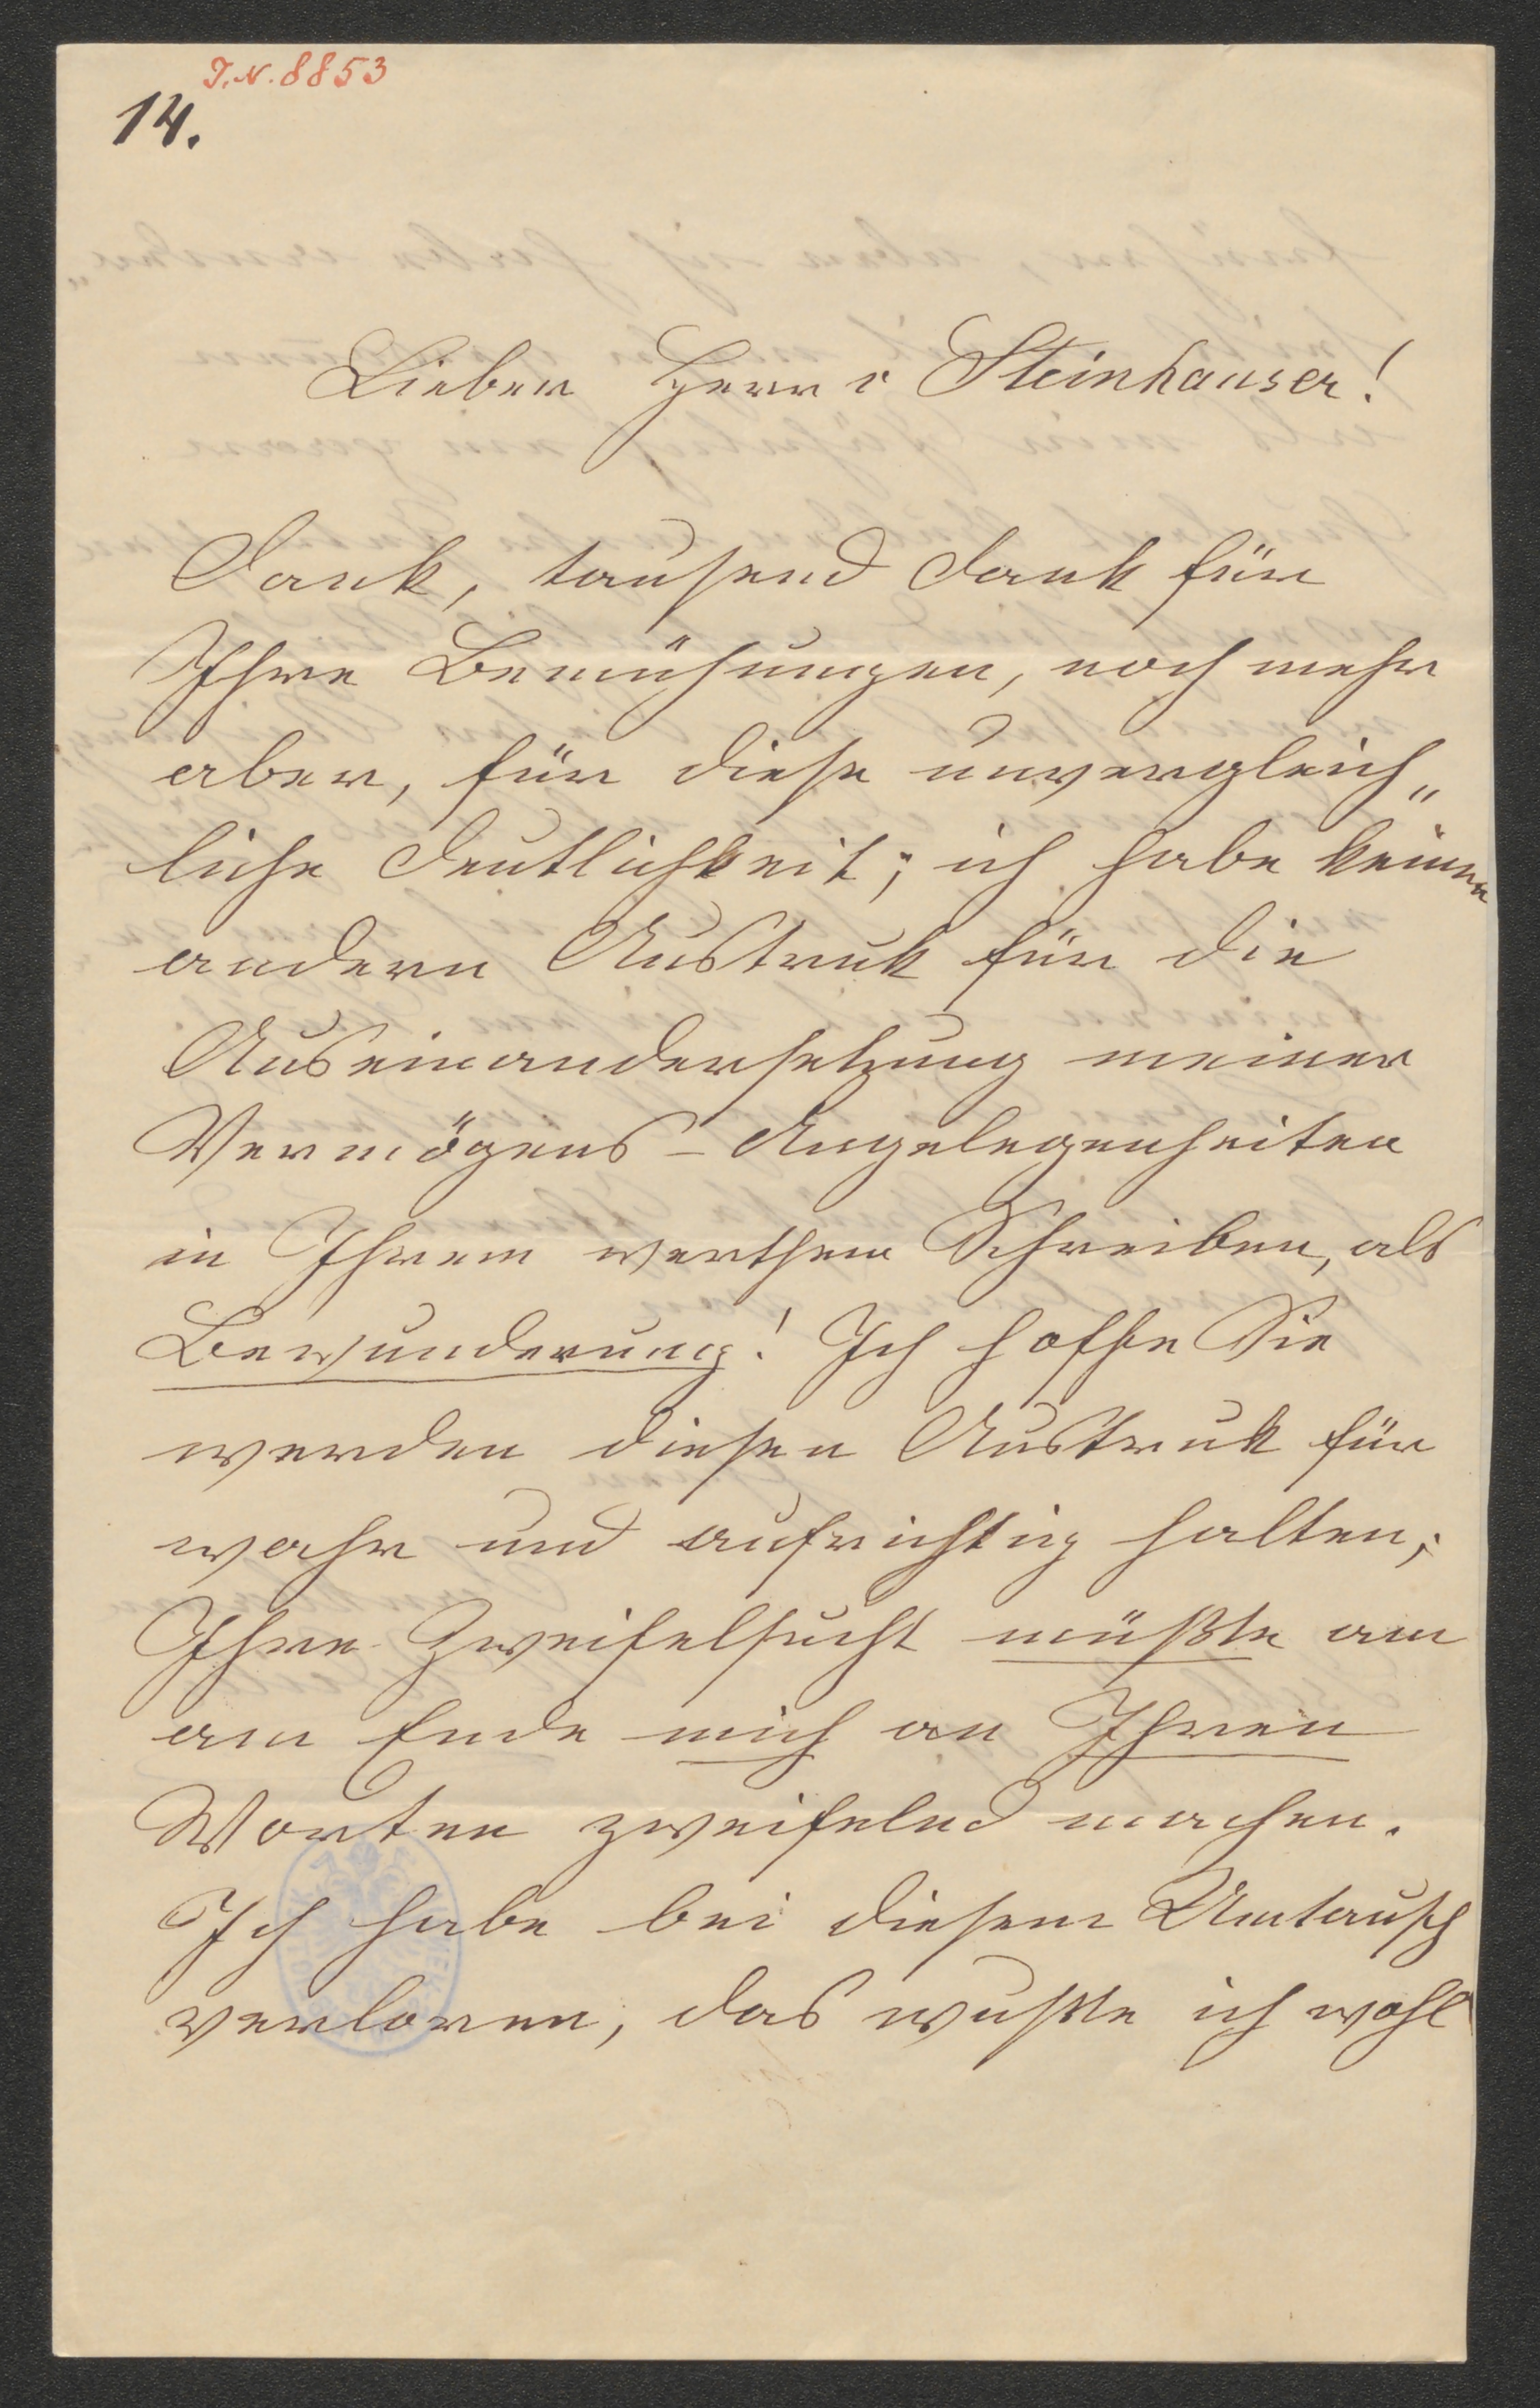 J.N. 8853
14.
Lieber Herr v Steinhauser!
Dank, tausend Dank für
Ihre Bemühungen, noch mehr
aber, für diese unvergleich„
liche Deutlichkeit; ich habe keinen
andern Austruk für die
Auseinandersetzung meiner
Vermögens-Angelegenheiten
in Ihrem werthen Schreiben, als
Bewunderung! Ich hoffe Sie
werden diesen Austruk für
wahr und aufrichtig halten;
Ihre Zweifelsucht müßte am
am Ende mich an Ihren
Worten zweifelnd machen.
Ich habe bei diesem Umtausch
verloren, das wußte ich wohl